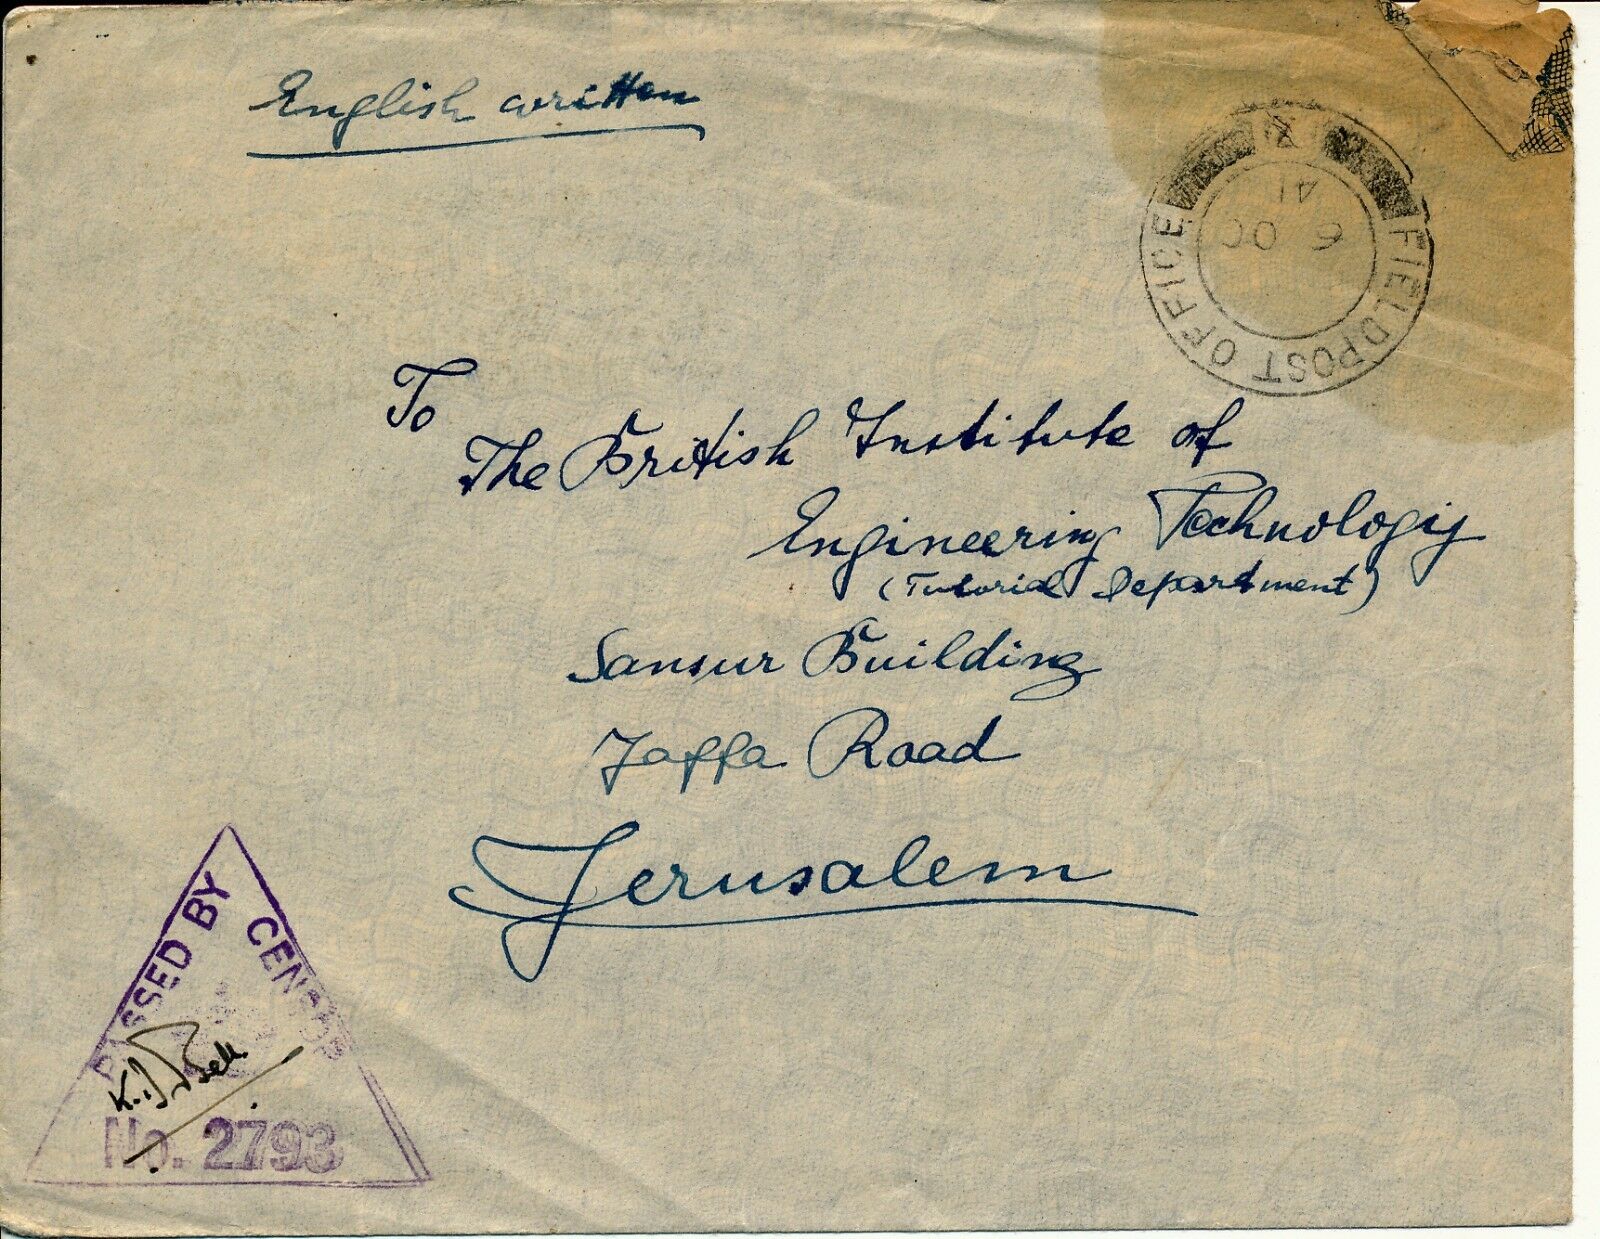 English written
FIELD POST OFFICE
6 OC
41
To
The British Institute of
Engineering Technology
(Tutorial Department)
Sansur Building
Jaffa Road
Jerusalem
PASSED BY CENSOR
K. Bell.
No. 2793